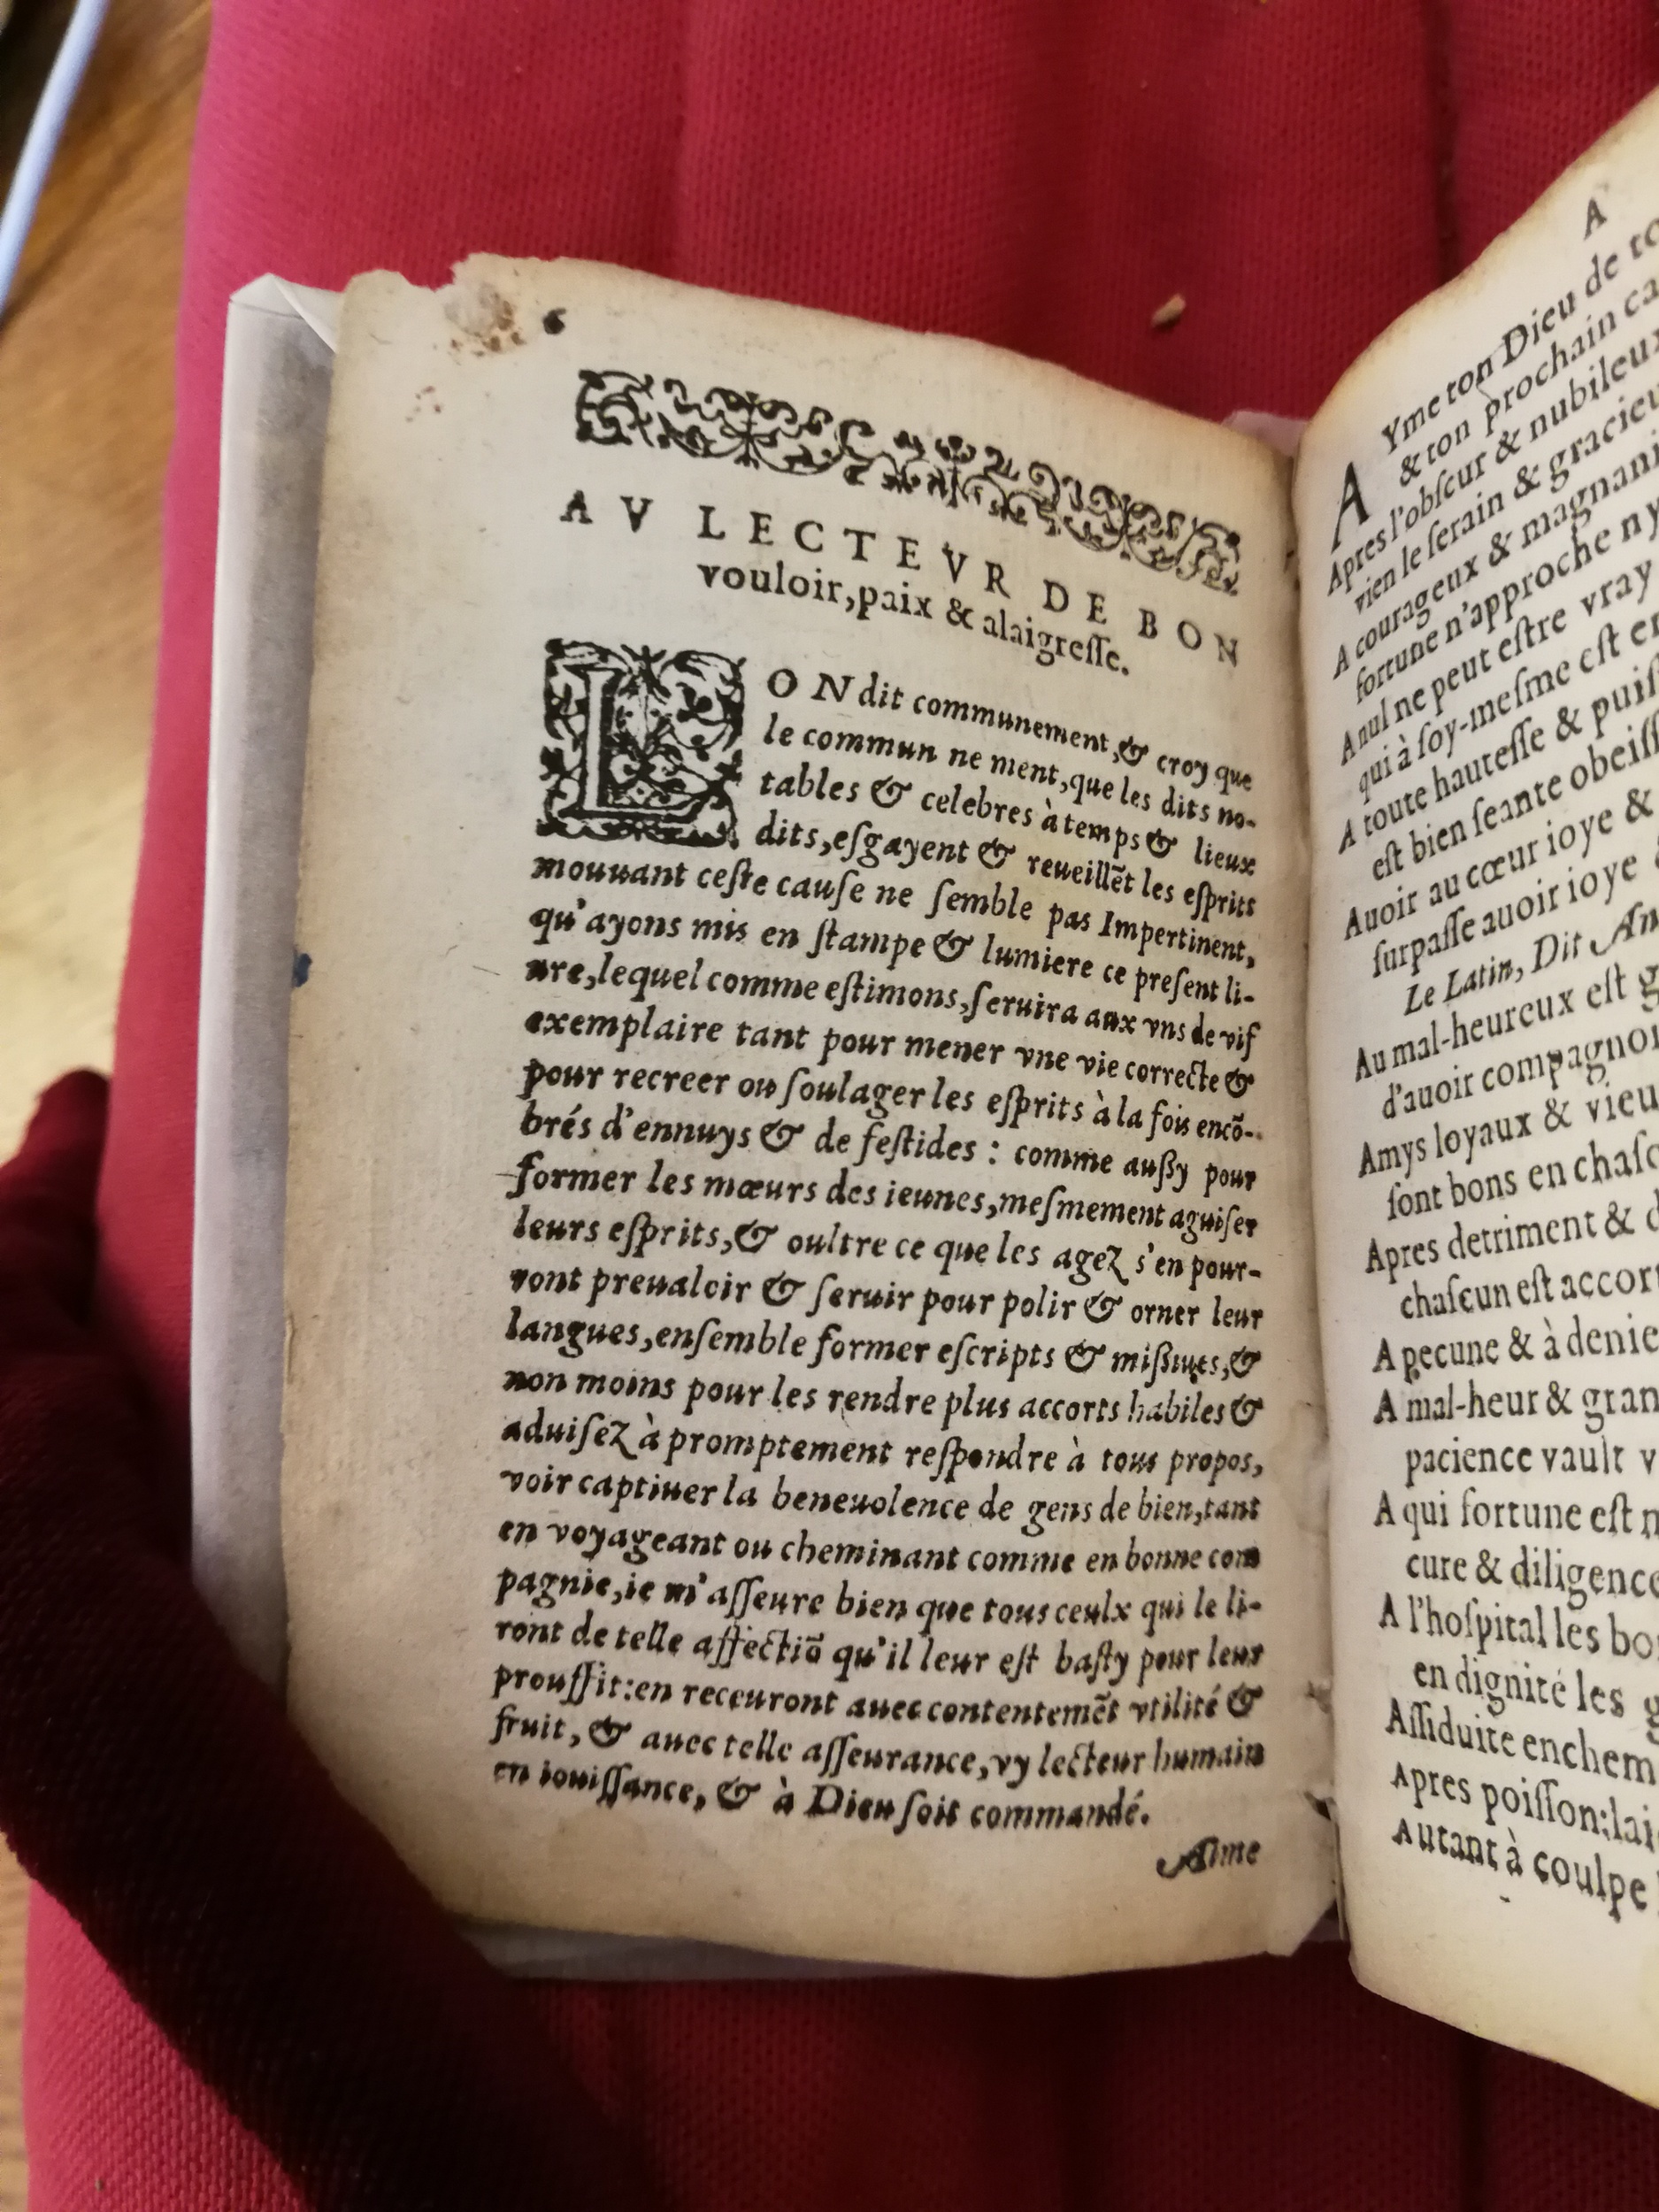 6
AV LECTEVR DE BON
vouloir, paix & alaigreſſe.
LON dit communement, & croy que
le commun ne ment, que les dits no-
tables & celebres à temps & lieux
dits, eſgayent & reueillẽt les eſprits
mouuant ceſte cauſe ne ſemble pas Impertinent,
qu'ayons mis en ſtampe & lumiere ce preſent li-
ure, lequel comme eſtimons, ſeruira aux vns de vif
exemplaire tant pour mener vne vie correcte &
pour recreer ou ſoulager les eſprits à la fois encõ-
brés d'ennuys & de feſtides : comme auſſy pour
former les mœurs des ieunes, meſmement aguiſer
leurs eſprits, & oultre ce que les agez s'en pour-
ront preualoir & ſeruir pour polir & orner leur
langues, enſemble former eſcripts & miſſiues, &
non moins pour les rendre plus accorts habiles &
aduiſez à promptement reſpondre à tous propos,
voir captiuer la beneuolence de gens de bien, tant
en voyageant ou cheminant comme en bonne com
pagnie, ie m'aſſeure bien que tous ceulx qui le li-
ront de telle affectiõ qu'il leur eſt baſty pour leur
prouffit: en receuront auec contentemẽt vtilité &
fruit, & auec telle aſſeurance, vy lecteur humain
en iouiſſance, & à Dieu ſoit commandé.
Aime
A
AYme ton Dieu de
& ton prochain
Apres l'obſcur & nubileux
vien le ſerain & gracieu
A courageux & magnani
fortune n'approche ny
A nul ne peut eſtre vray
qui à ſoy-meſme eſt
A toute hauteſſe & puiſ
eſt bien ſeante obeiſſ
Auoir au cœur ioye &
ſurpaſſe auoir ioye
Le Latin, Dit
Au mal-heureux eſt
d'auoir compagnon
Amys loyaux & vieu
ſont bons en chaſc
Apres detriment &
chaſcun eſt accort
A pecune & à denie
A mal-heur & gran
pacience vault
A qui fortune eſt
cure & diligence
A l'hoſpital les
en dignité les
Aſſiduite en chem
Apres poiſſon: lai
Autant à coulpe